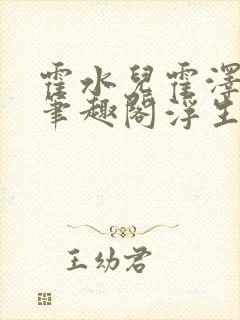 霍水兒霍澤
筆趣閣浮生
王幼君